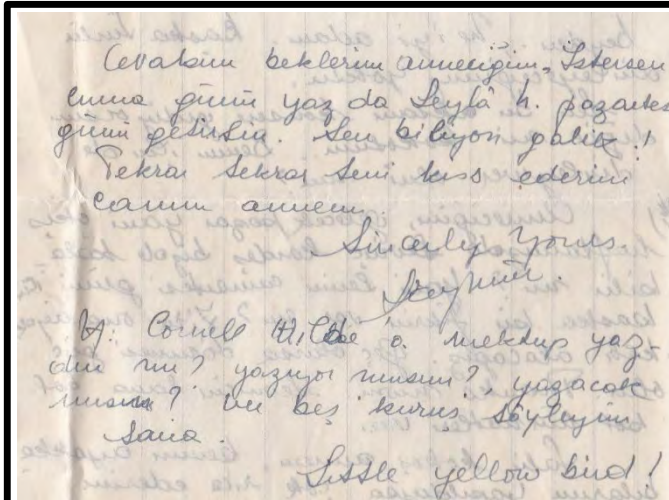 Cevabını beklerim anneciğim, İstersen
cuma günü yaz da Leylâ h. pazartesi
günü getirsin. Sen biliyon galik!
Tekrar tekrar seni kiss ederim
canım annem.
Sincerly Yours.
Cornell Wilde'a mektup yaz-
dın mı? yazıyor musun? yazacak
mısın? ver beş kuruş söyleyim
sana.
Little yellow bird!